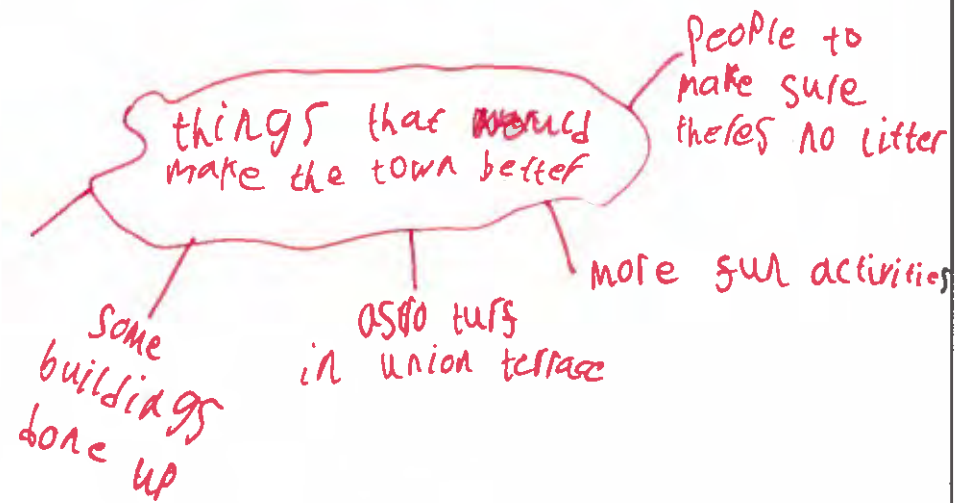 things that would
make the town better
People to
make sure
theres no litter
more fun activities
astro turf
in union terrace
some
buildings
done up